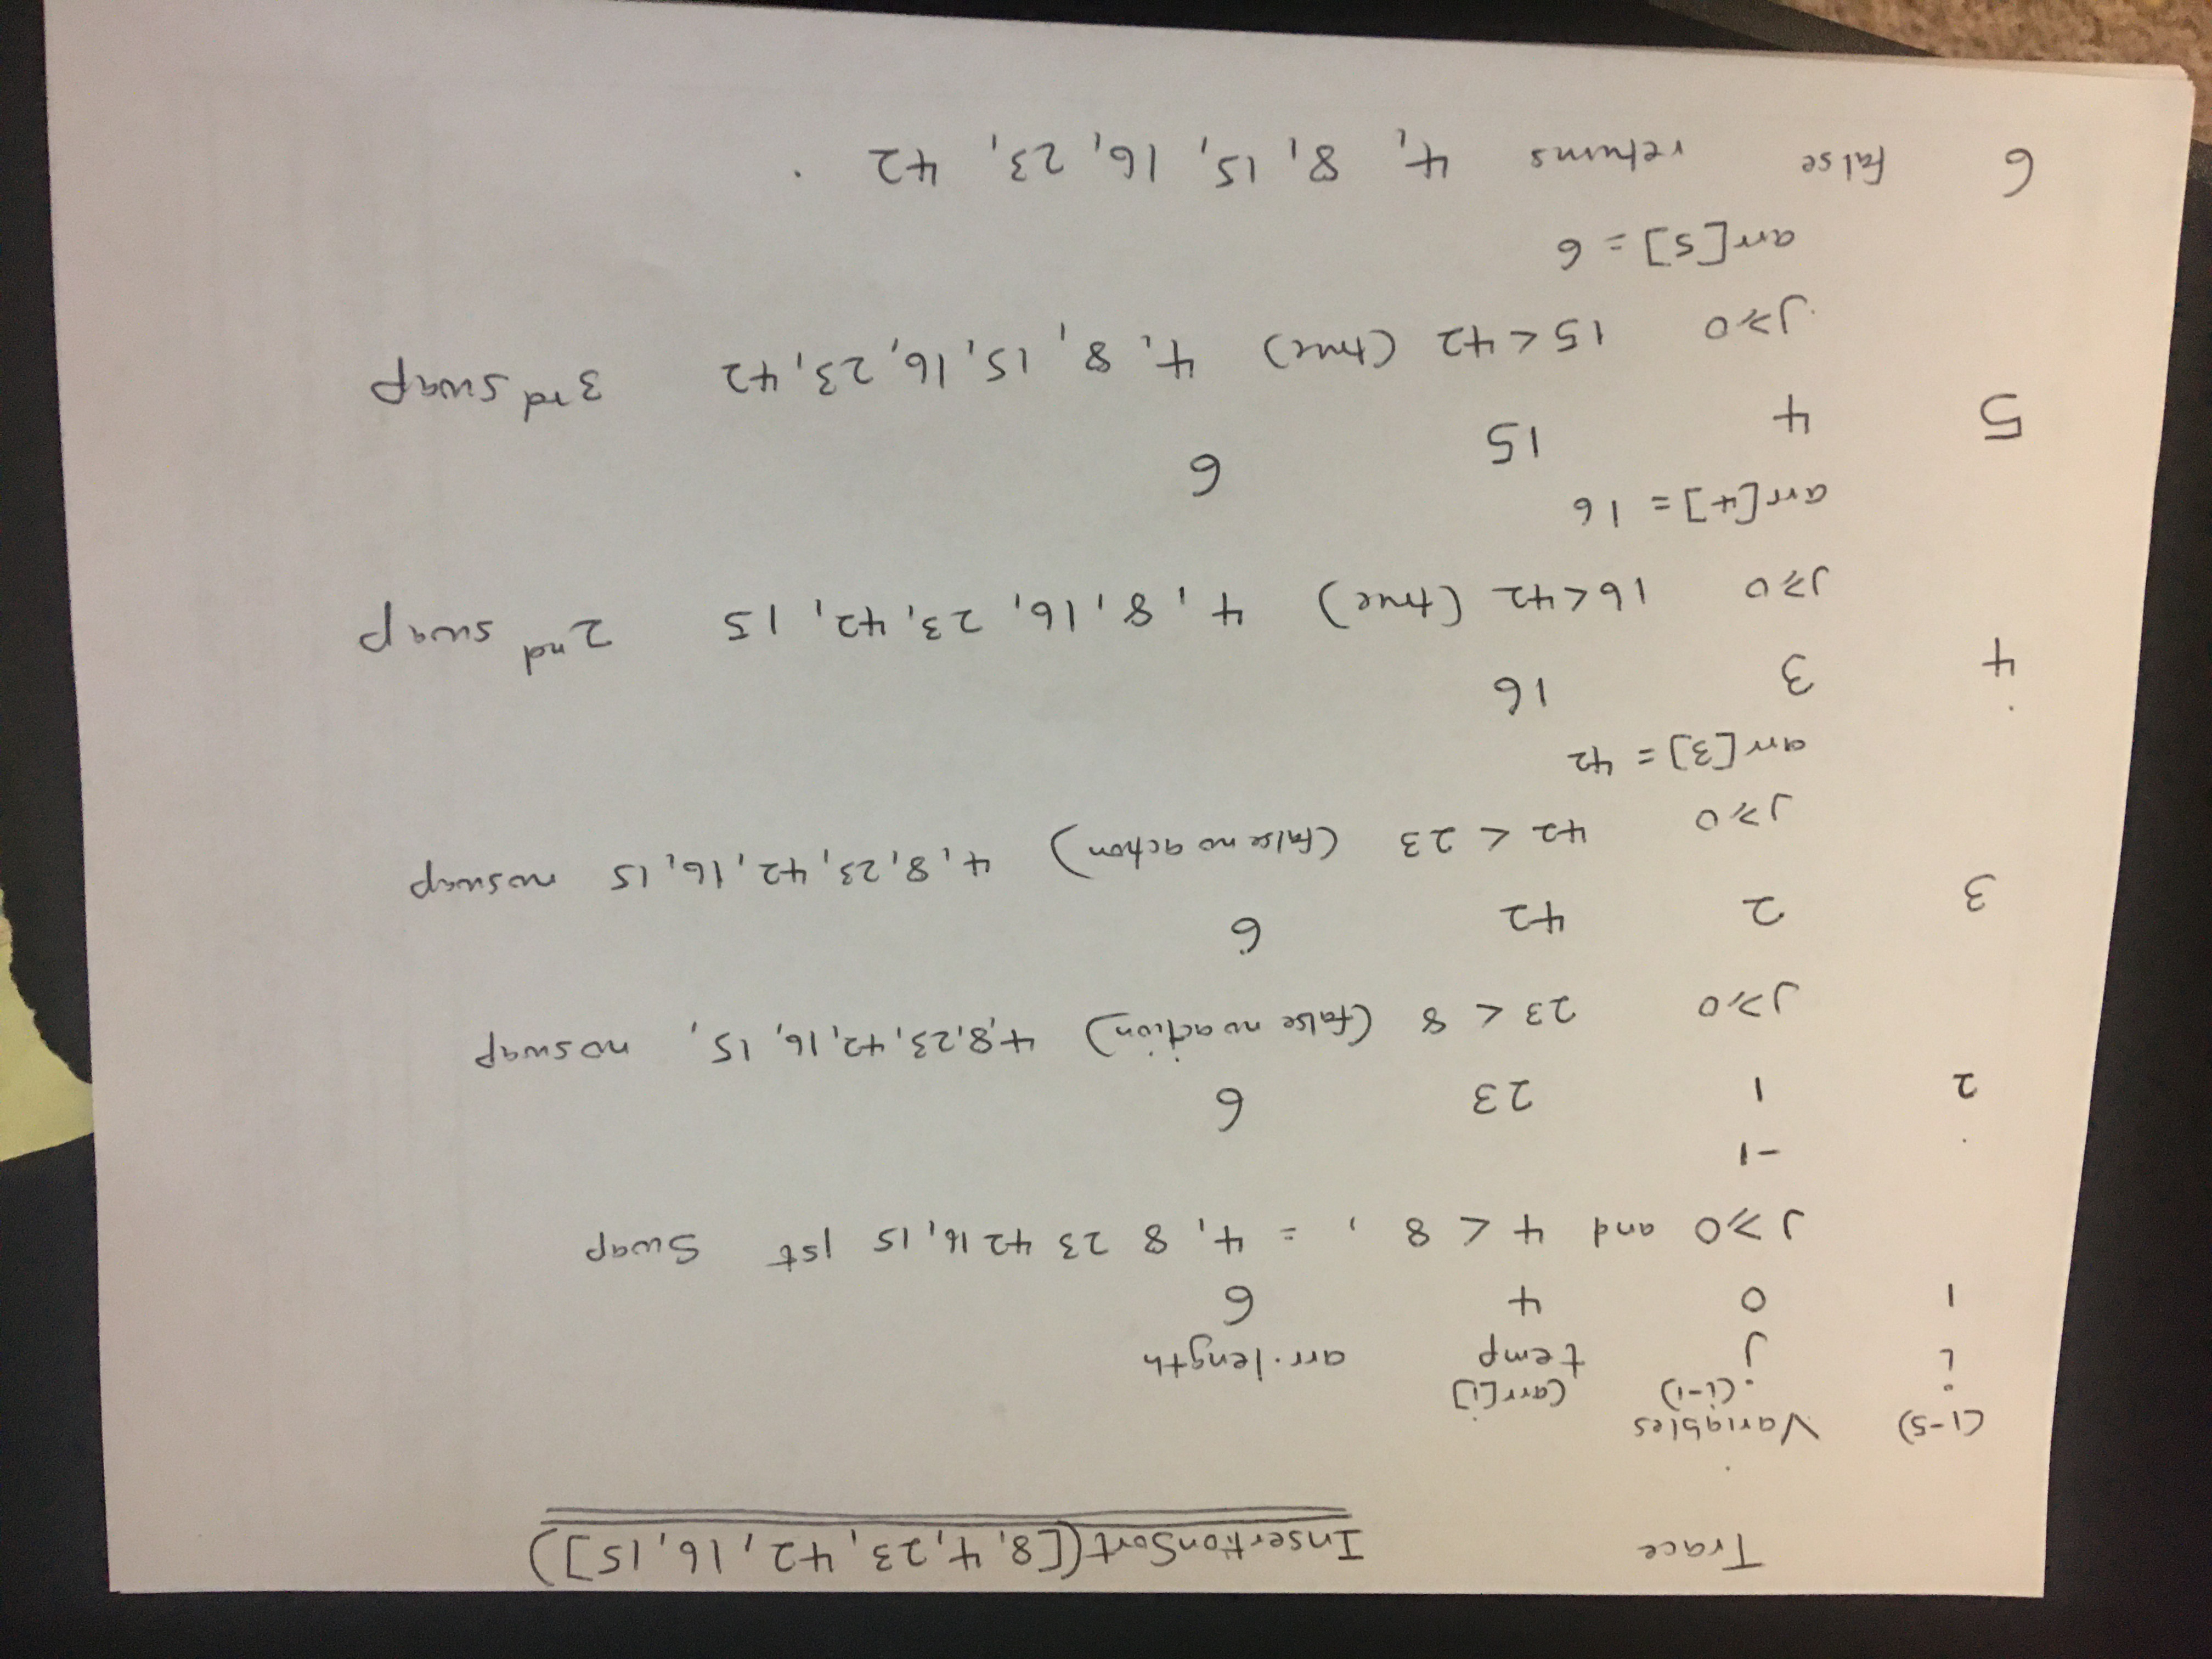 Trace InsertionSort([8, 4, 23, 42, 16, 15])
(1-5) Variables
(i-1) (arr[i]
i j temp arr.length
1 0 4 6
J ⩾0 and 4 < 8 , = 4, 8 23 42 16, 15 1st Swap
-1
2 1 23 6
J⩾0 23 < 8 (false no action) 4,8,23,42,16, 15, no swap
3 2 42 6
J⩾0 42 < 23 (false no action) 4,8,23,42,16,15 no swap
arr[3] = 42
4 3 16
J⩾0 16<42 (true) 4, 8, 16, 23, 42, 15 2nd swap
arr[4] = 16
5 4 15 6
J⩾0 15<42 (true) 4, 8, 15, 16, 23, 42 3rd swap
arr[5] = 6
6 false returns 4, 8, 15, 16, 23, 42 .